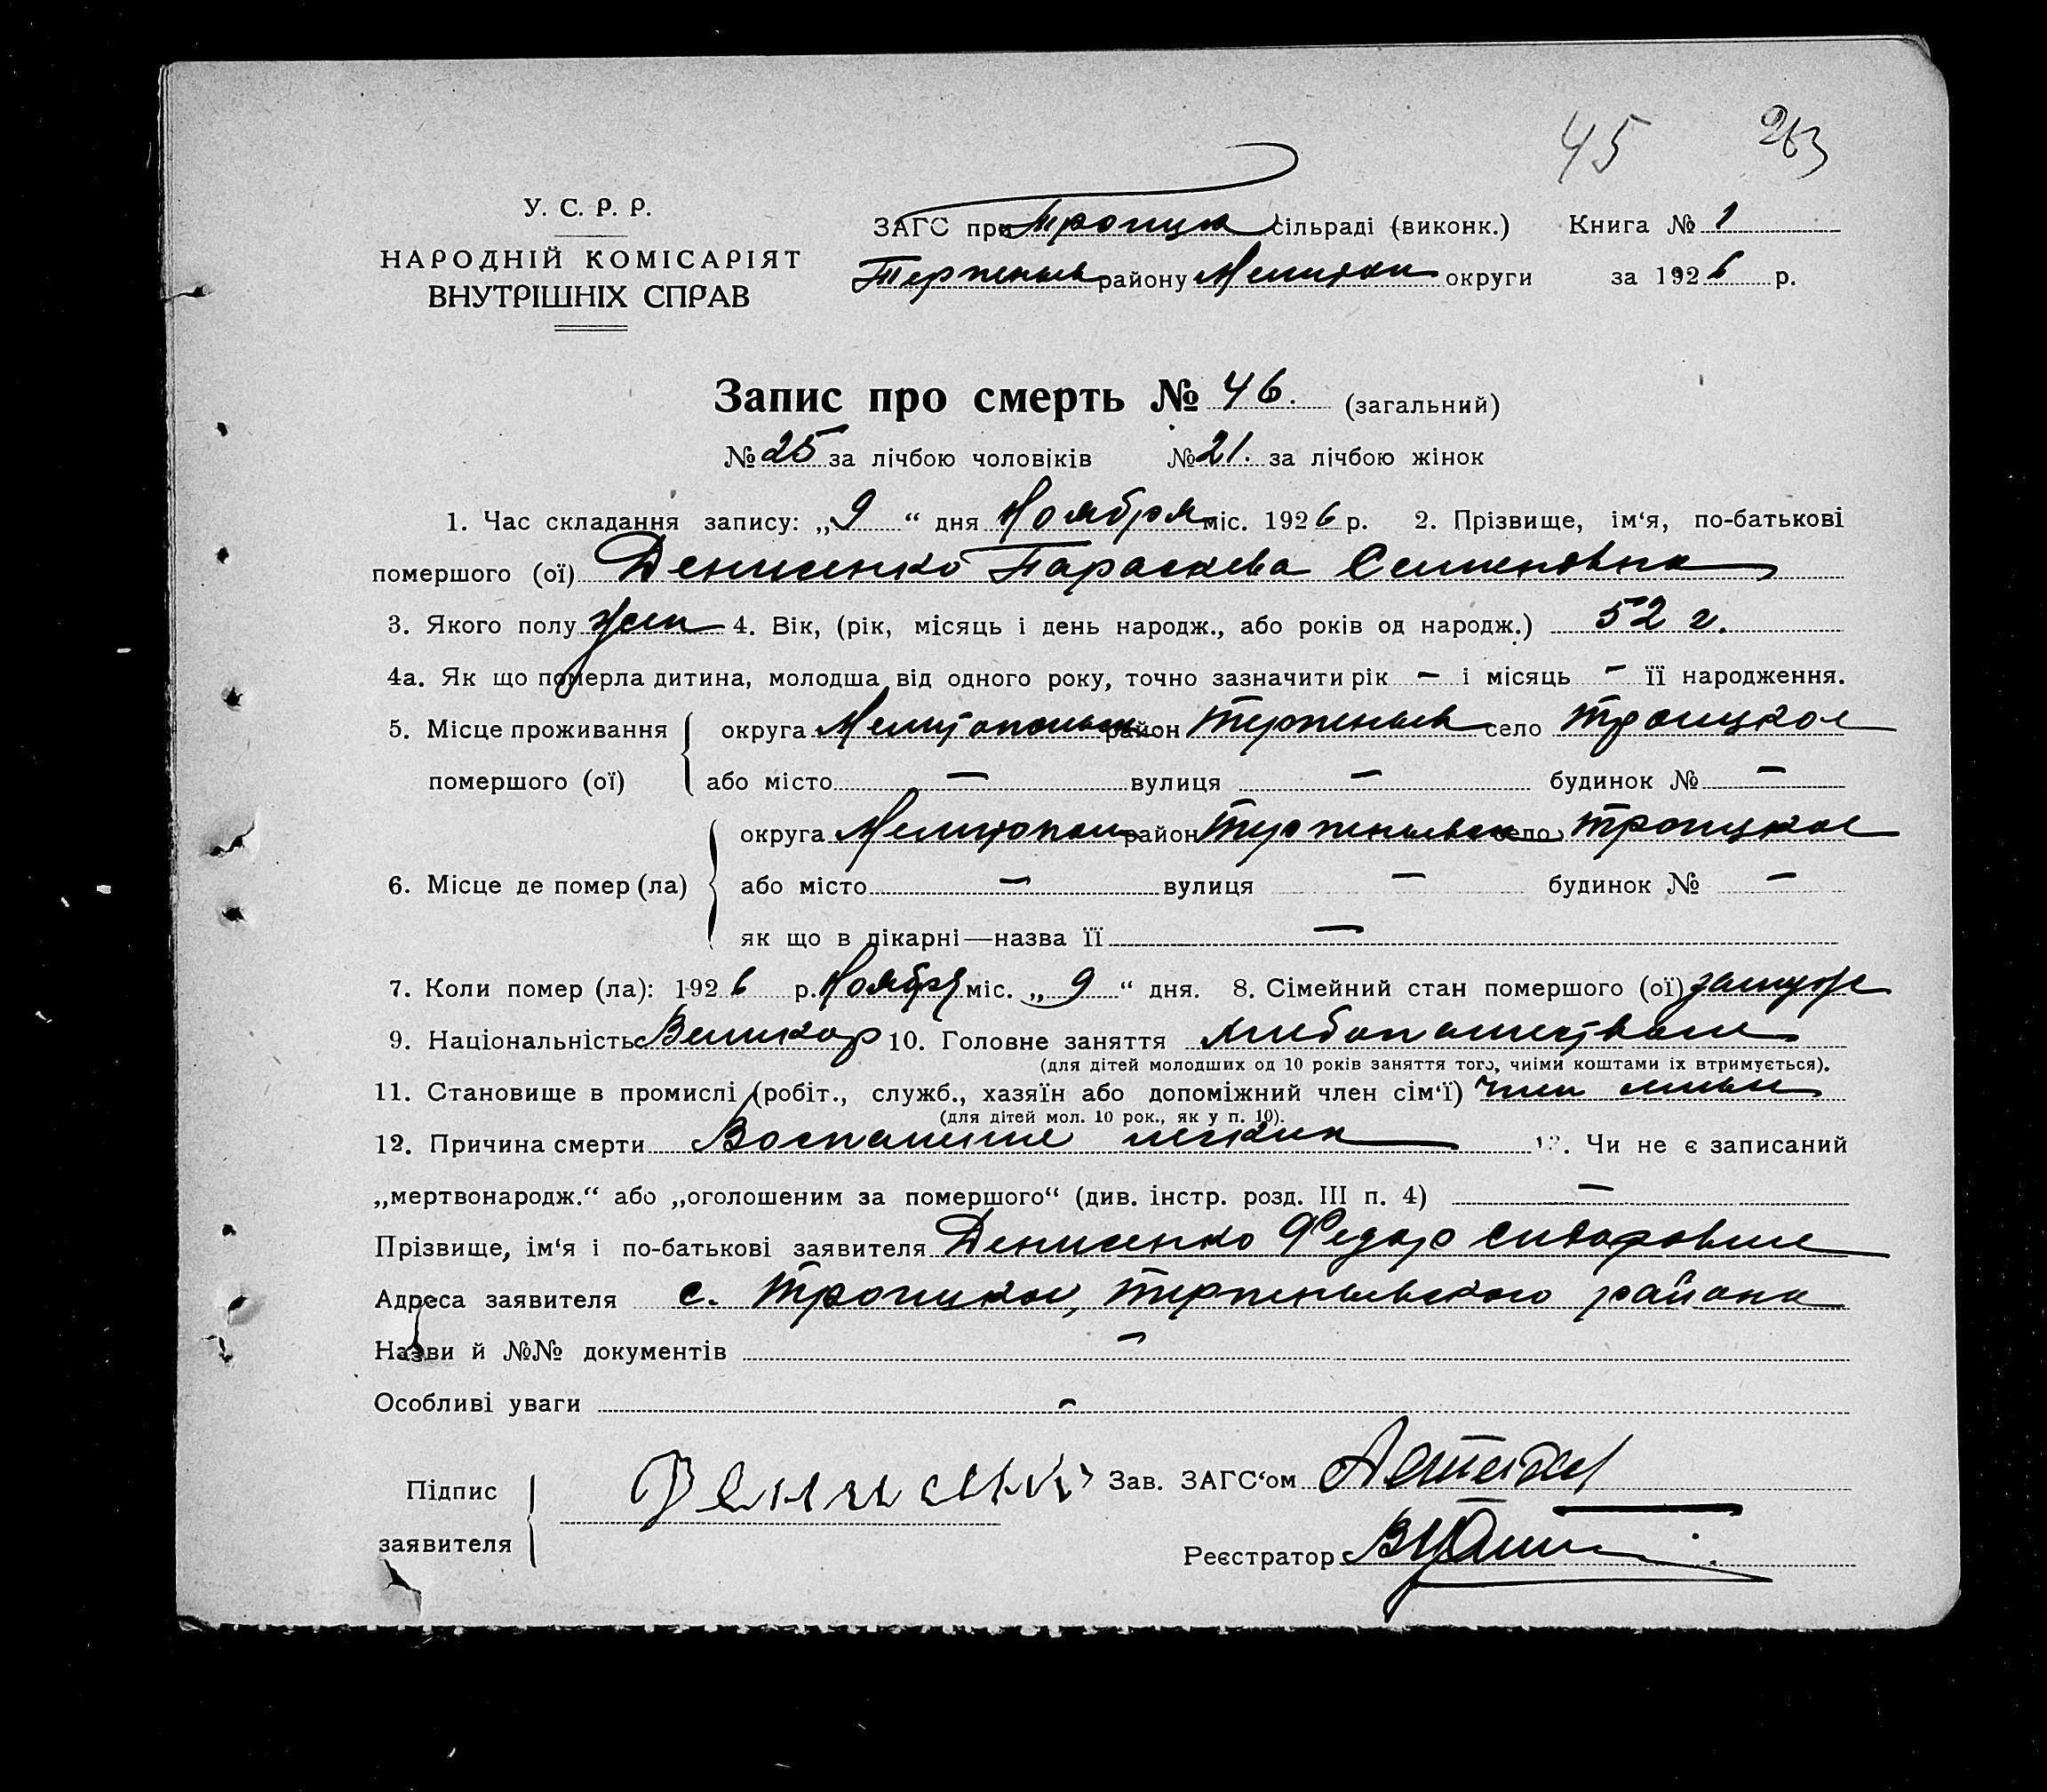 45 263
У. С. Р. Р.
НАРОДНІЙ КОМІСАРІЯТ
ВНУТРІШНІХ СПРАВ
ЗАГС при Троицк сільраді (виконк.) Книга № 1
Терпеньев району Мелитоп округи за 1926 р.
Запис про смерть № 46. (загальний)
№ 25 за лічбою чоловіків № 21. за лічбою жінок
1. Час складання запису: „9“ дня Ноября міс. 1926 р. 2. Прізвище, ім‘я, по-батькові
помершого (ої) Денисенко Параскева Семеновна
3. Якого полу жен 4. Вік, (рік, місяць і день народж., або років од народж.) 52 г.
4а. Як що померла дитина, молодша від одного року, точно зазначити рік – і місяць – її народження.
5. Місце проживання округа Мелитопольск район Терпеньев село Троицкое
помершого (ої) або місто – вулиця – будинок № –
округа Мелитопол район Терпеньевск село Троицкое
6. Місце де помер (ла) або місто – вулиця – будинок № –
як що в лікарні—назва її –
7. Коли помер (ла): 1926 р. Ноября міс. „9“ дня. 8. Сімейний стан помершого (ої) замуж
9. Національність Великор 10. Головне заняття хлебопашество
(для дітей молодших од 10 років заняття того, чиїми коштами їх втримується).
11. Становище в промислі (робіт., служб., хазяїн або допоміжний член сім‘ї) член семьи
(для дітей мол. 10 рок., як у п. 10).
12. Причина смерти Воспаление легких 13. Чи не є записаний
„мертвонародж.“ або „оголошеним за помершого“ (див. інстр. розд. III п. 4) –
Прізвище, ім‘я і по-батькові заявителя Денисенко Федор Сидорович
Адреса заявителя с. Троицкое, Терпеньевского района
Назви й №№ документів –
Особливі уваги –
Підпис заявителя Денисенк Зав. ЗАГС‘ом
Реєстратор